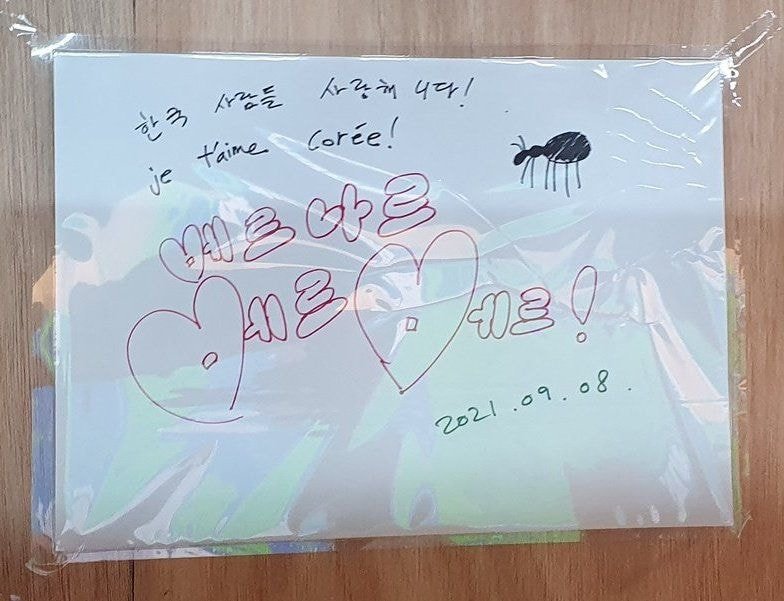 한국 사람들 사랑해 니다!
je t'aime Corée!
베르나르
베르베르!
2021.09.08.